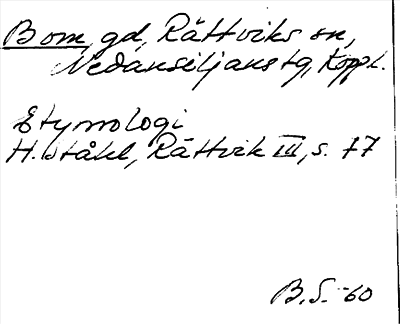 Bom, gd, Rättviks sn,
Nedansiljans tg, Koppl.
Etymologi
H. Ståhl, Rättvik III, s. 77
B.S. -60